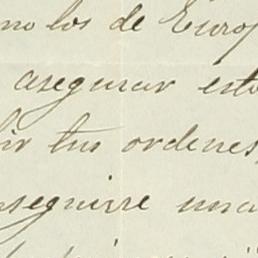 no los de Europ
asegurar esto
ir tus ordenes,
nseguirre una